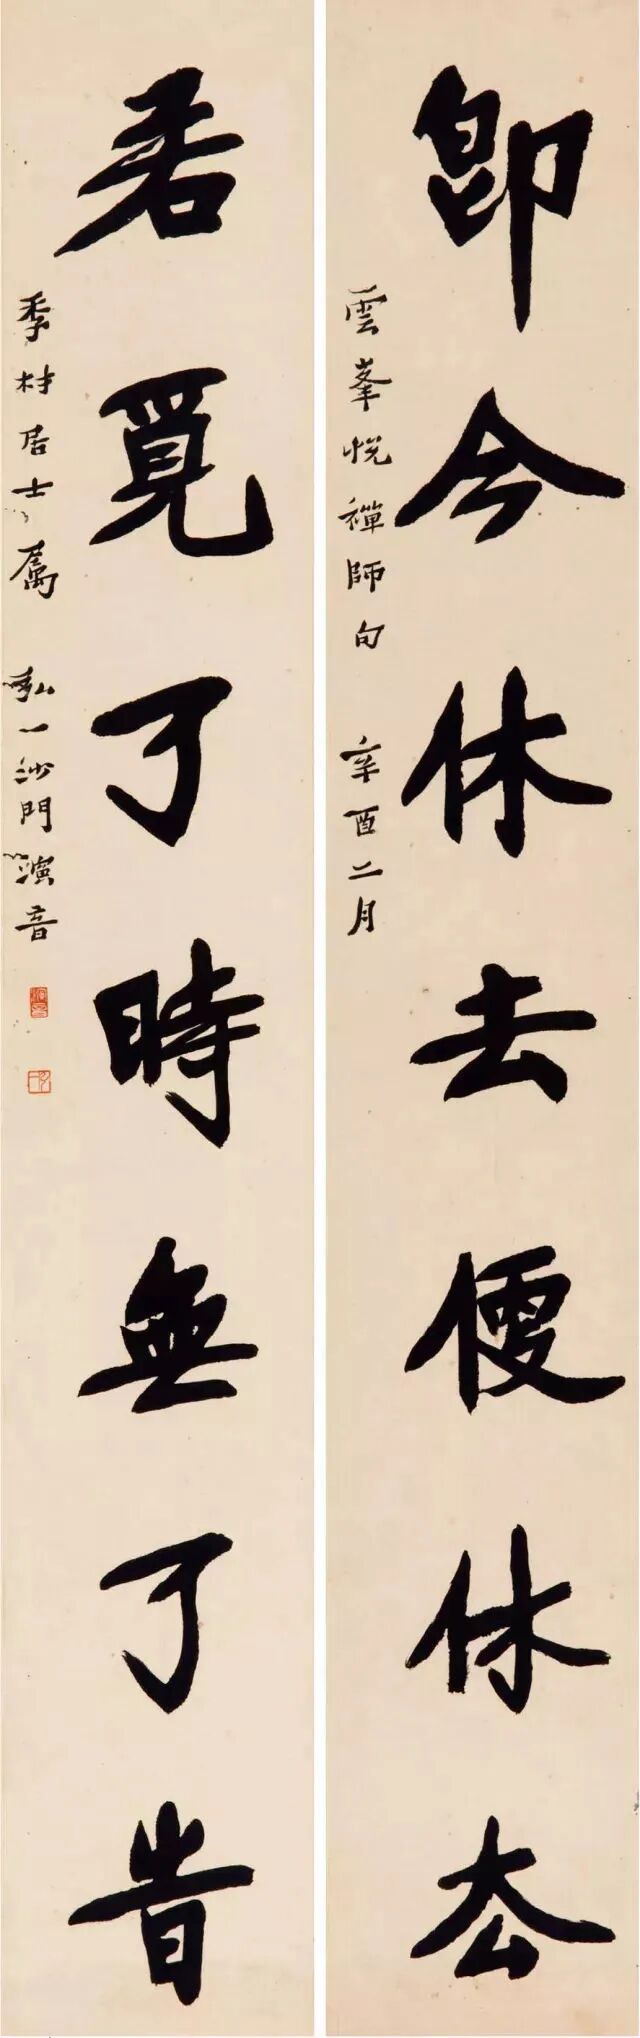 即今休去便休厺
雲峯悅禪師句 辛酉二月
若覓了時無了旹
季村居士屬 弘一沙門演音